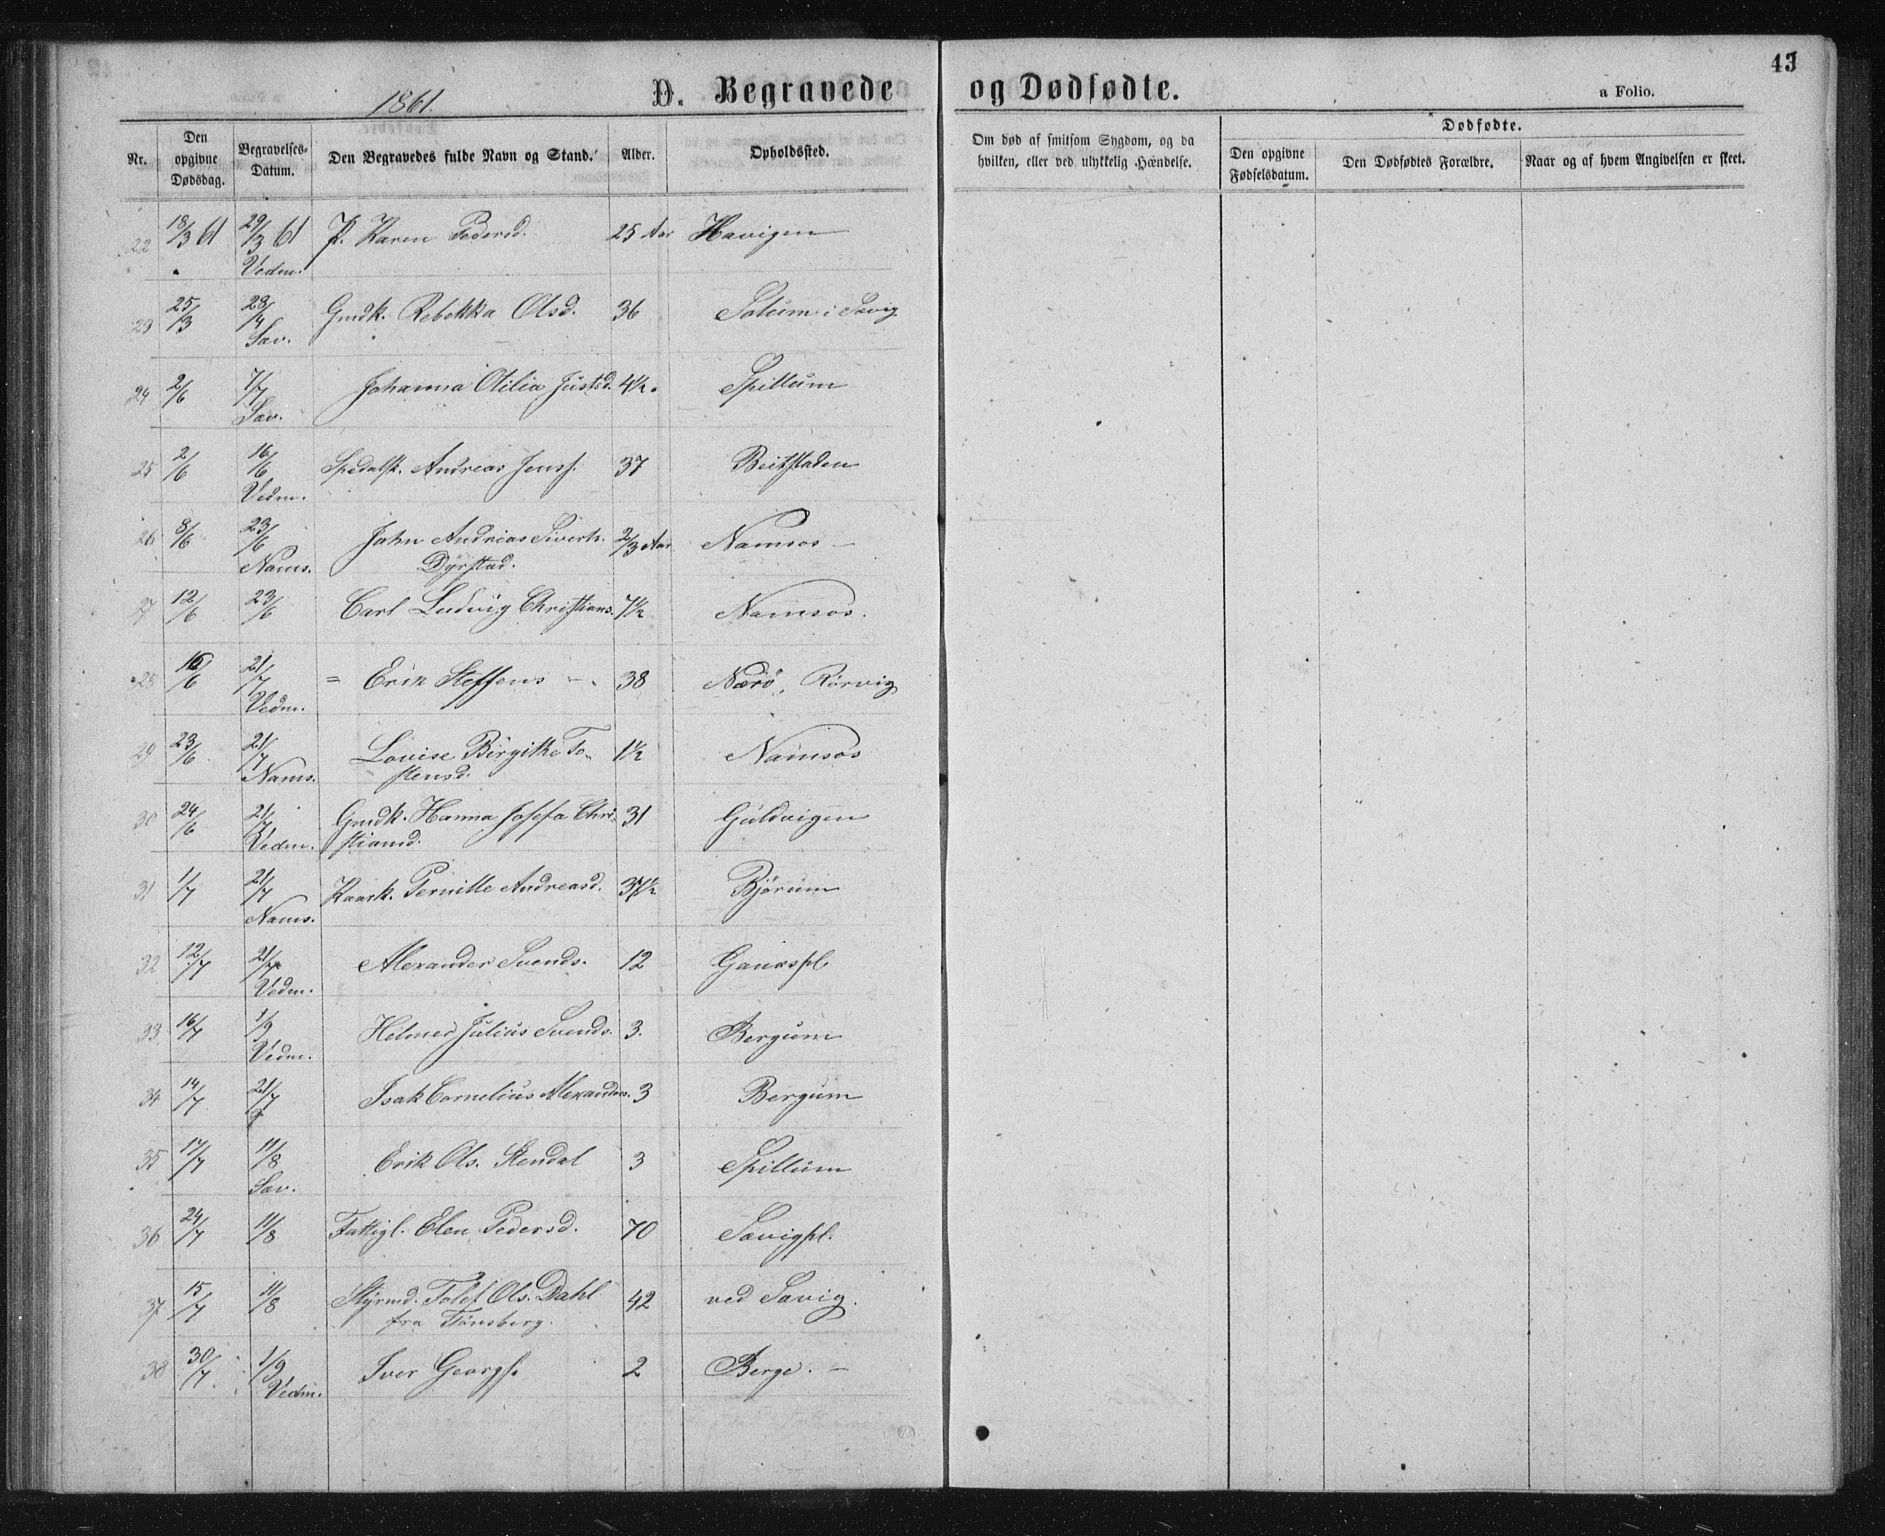 43
1861.
D. Begravede og Dødfødte.
a Folio.
Nr.
Den opgivne Dødsdag.
Begravelses-Datum.
Den Begravedes fulde Navn og Stand.
Alder.
Opholdssted.
Om død af smitsom Sygdom, og da hvilken, eller ved ulykkelig Hændelse.
Dødfødte.
Den opgivne Fødselsdatum.
Den Dødfødtes Forældre.
Naar og af hvem Angivelsen er skeet.
22 18/3 61 29/3 61 P. Karen Pedersd. 25 Aar Havigen
Vedm.
23 25/3 28/4 Gmdk. Rebekka Olsd. 36 Solum i Savig
Sav.
24 2/6 7/7 Johanna Otilia Justsd. 4½ Spillum
Sav.
25 2/6 16/6 Spedalsk. Andreas Jensf. 37 Beitstaden
Vedm.
26 8/6 23/6 John Andreas Siverts. 2/3 Aar Namsos
Nams. Dyrstad.
27 12/6 23/6 Carl Ludvig Christians. 7½ Namsos.
28 16/6 21/7 = Erik Steffens 38 Nærø, Rørvig
Vedm.
29 23/6 21/7 Lovise Birgitte To- 1½ Namsos
Nams. stensd.
30 24/6 21/7 Gmdk. Hanna Josefa Chri- 31 Guldvigen
Vedm. stiansd.
31 1/7 21/7 Kaark. Pernille Andreasd. 37½ Bjørum
Nams.
32 12/7 21/7 Alexander Svends. 12 Ganaspl
Vedm.
33 16/7 1/9 Helmer Julius Svends. 3. Bergum
Vedm.
34 14/7 21/7 Isak Cornelius Alexanders. 3 Bergum
35 17/7 11/8 Erik Ols. Stendal 3 Spillum
Sav.
36 24/7 11/8 Fattigl. Elen Pedersd. 70 Savigpl.
37 15/7 11/8 Styrmd. Tolef Ols. Dahl 42 ved Savig.
fra Tønsberg.
38 30/7 1/9 Iver Georgs. 2 Berge.
Vedm.